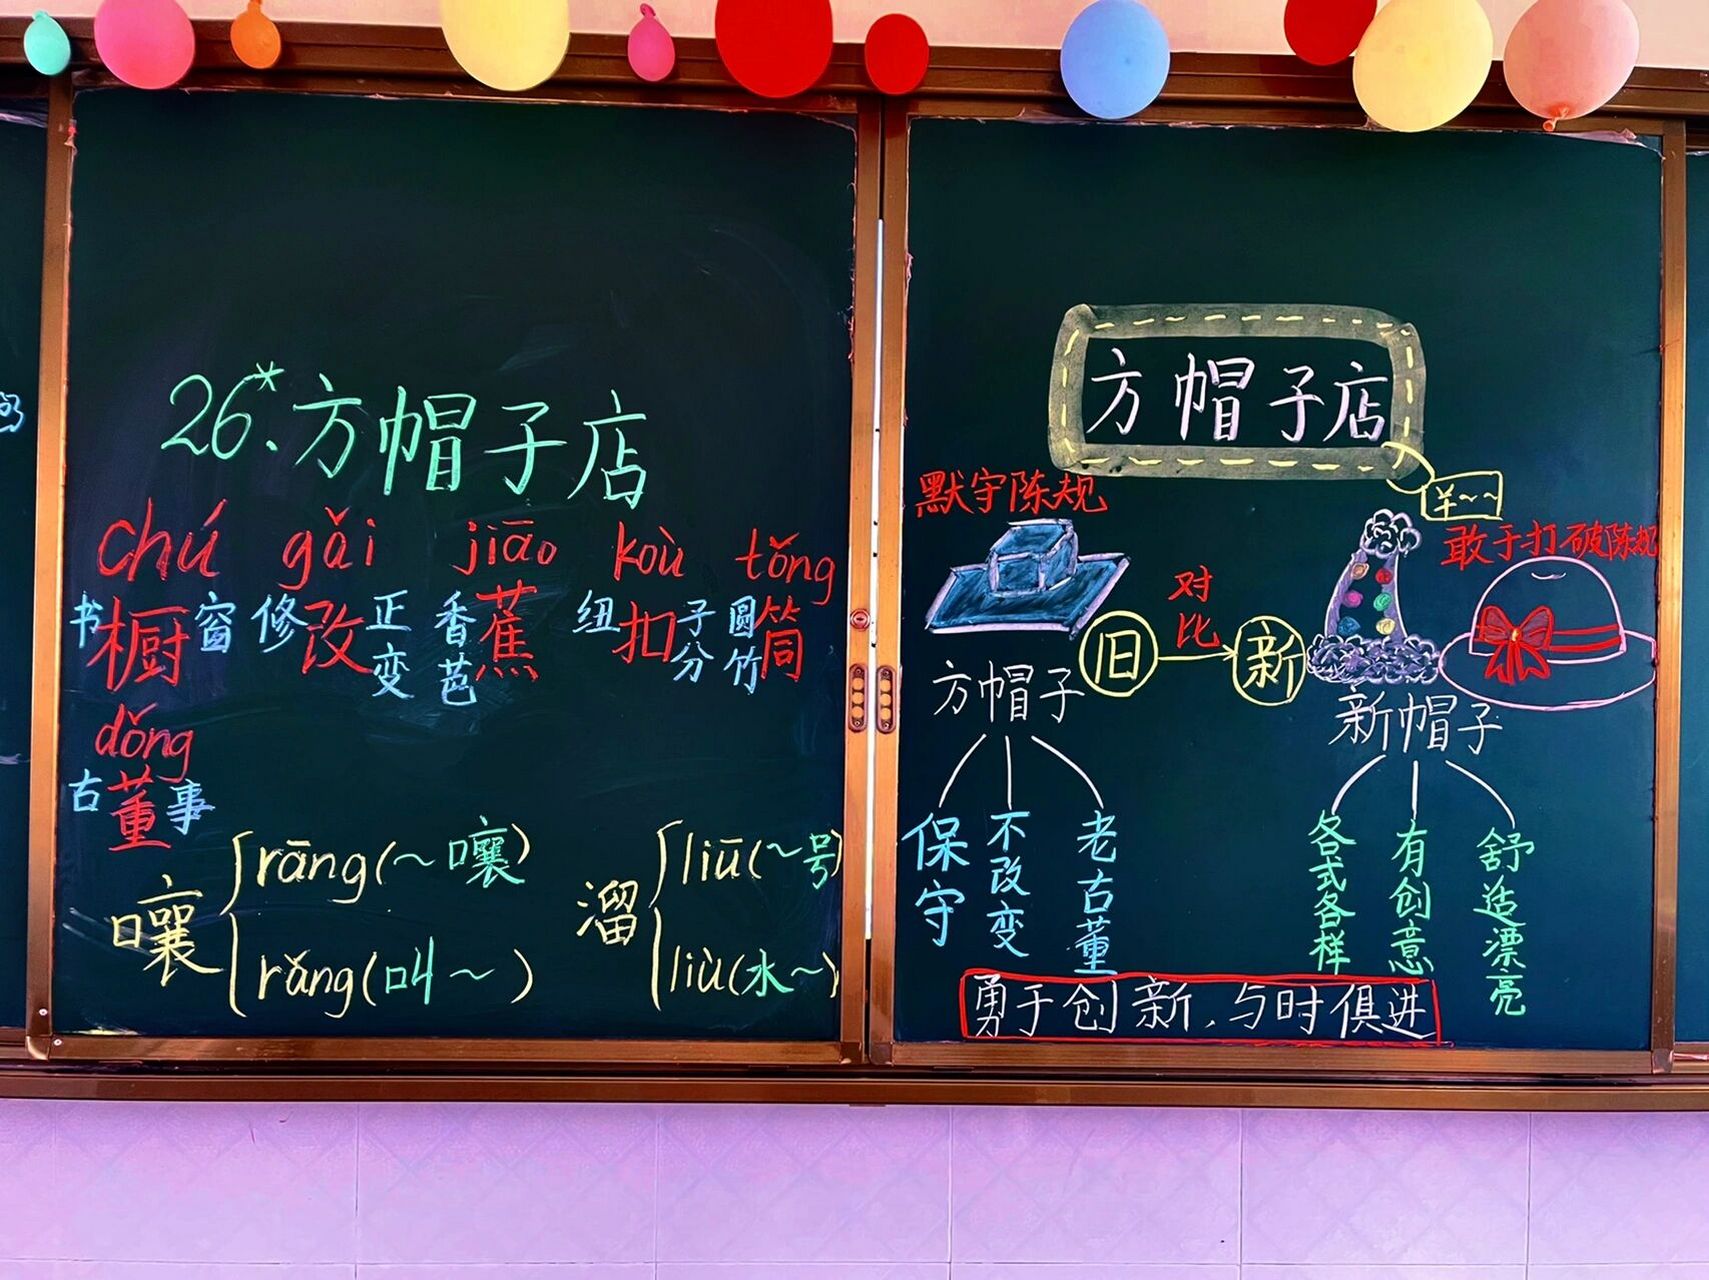 26*.方帽子店
chú gǎi jiāo koù tǒng
书橱窗 修改正变 香芭蕉 纽扣子分 圆竹筒
dǒng
古董事
嚷 rāng(～嚷)
rǎng(叫～)
溜 liū(～号)
liù(水～)
方帽子店
羊~~
默守陈规
敢于打破陈规
旧 对比 新
方帽子
新帽子
保守
不改变
老古董
各式各样
有创意
舒适漂亮
勇于创新,与时俱进